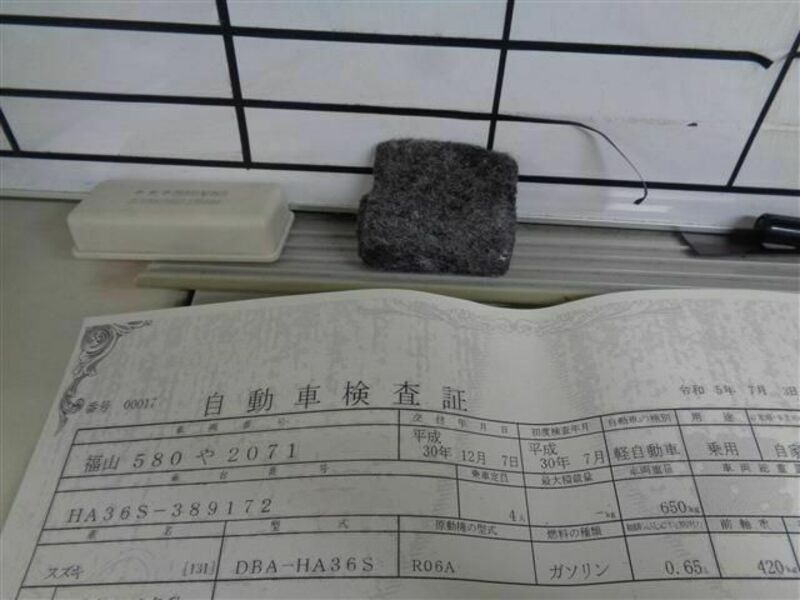 令和 5年 7月 3日
番号 00017
自動車検査証
車両番号 交付年月日 初度検査年月 自動車の種別 用途
福山 580 や 2071 平成 30年 12月 7日 平成 30年 7月 軽自動車 乗用 自家
車台番号 乗車定員 最大積載量 車両重量 車両総重量
HA36S-389172 4人 -kg 650kg
車名 型式 原動機の型式 燃料の種類 前軸重
スズキ [131] DBA-HA36S R06A ガソリン 0.65L 420kg